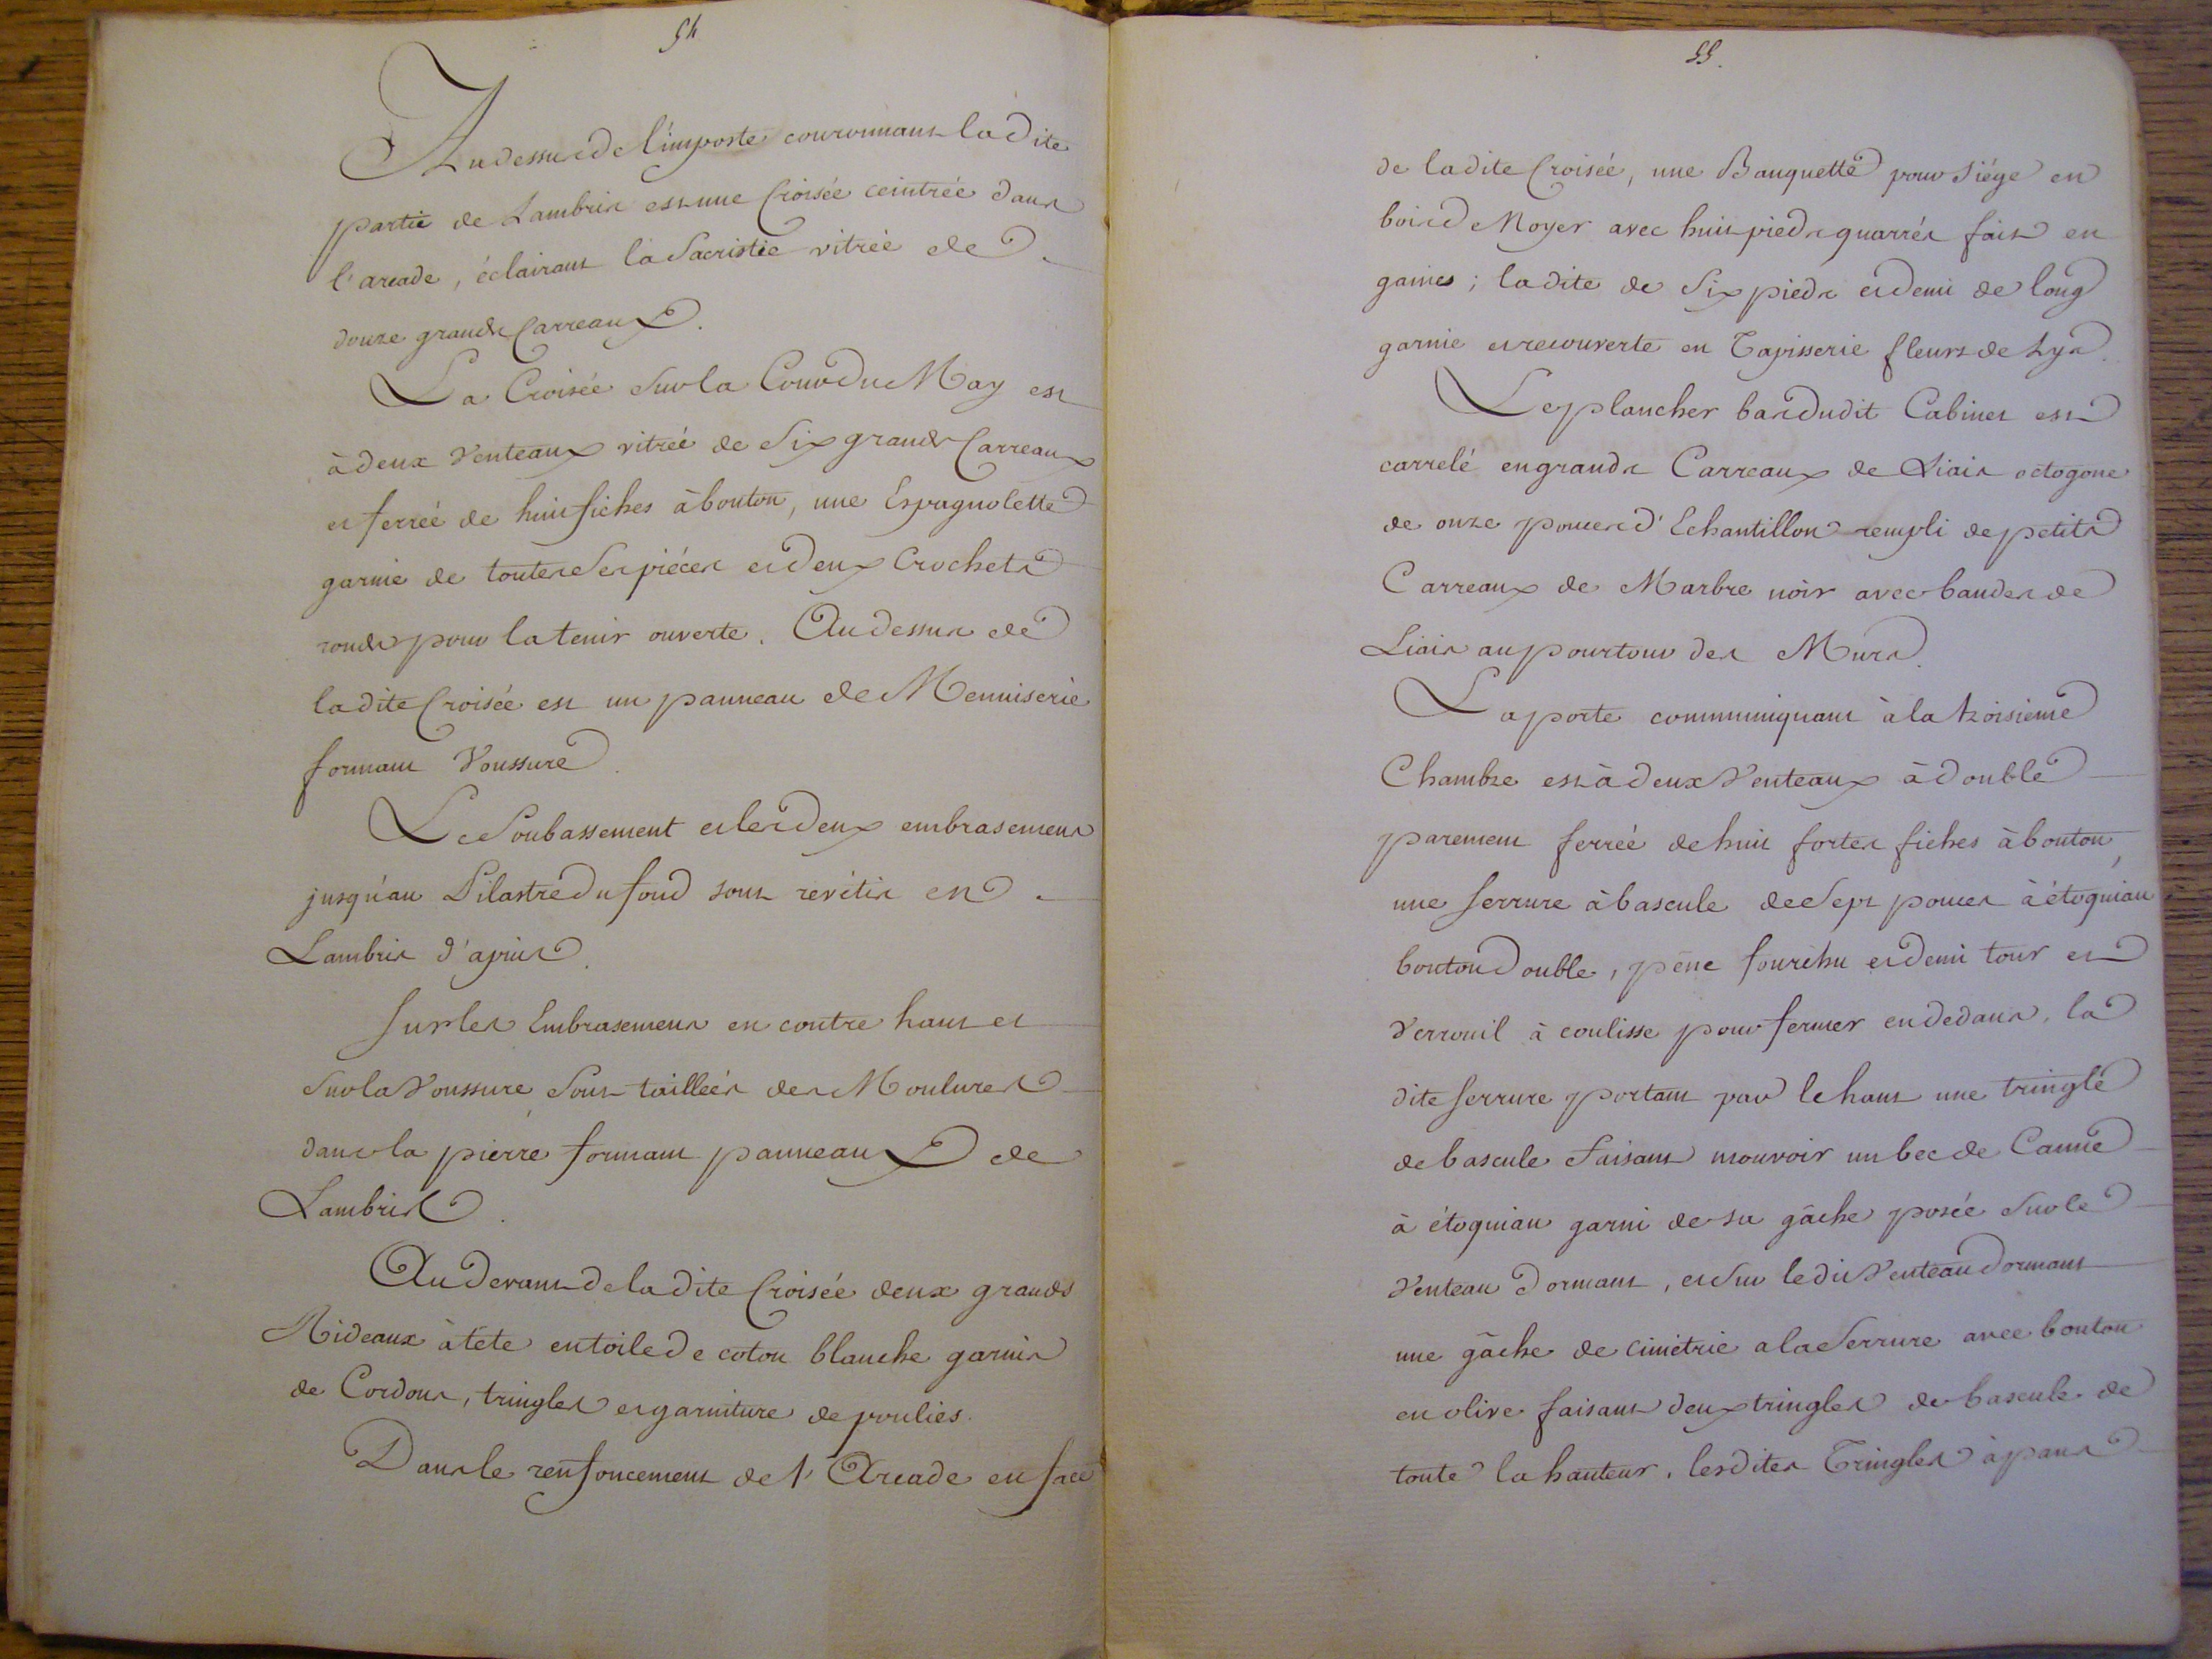 54
Au dessus de l'imposte couronnant la dite
partie de Lambris est une Croisée ceintrée dans
l'arcade, éclairant la Sacristie vitrée de
douze grands Carreaux.
La Croisée sur la Cour du May est
à deux Venteaux vitrée de Six grands Carreaux
et ferrée de huit fiches à bouton, une Espagnolette
garnie de toutes ses piéces et deux Crochets
ronds pour la tenir ouverte. Au dessus de
la dite Croisée est un panneau de Menuiserie
formant Voussure.
Le Soubassement et les deux embrasemens
jusqu'au Pilastre du fond sont revêtis en
Lambris d'apuis.
Sur les Embrasemens en contre haut et
sur la Voussure sont taillées des Moulures
dans la pierre formant panneaux de
Lambris.
Au devant de la dite Croisée deux grands
Rideaux à tête en toile de coton blanche garnis
de Cordons, tringles et garniture de poulies.
Dans le renfoncement de l'Arcade en face
55.
de la dite Croisée, une Banquette pour Siége en
bois de Noyer avec huit pieds quarrés fait en
gaines; la dite de Six pieds et demi de long
garnie et recouverte en Tapisserie fleurs de Lys.
Le plancher bas dudit Cabinet est
carrelé en grands Carreaux de Liais octogone
de onze pouces d'Echantillon rempli de petits
Carreaux de Marbre noir avec bandes de
Liais au pourtour des Murs.
La porte communiquant à la troisieme
Chambre est à deux Venteaux à double
parement ferrée de huit fortes fiches à bouton,
une serrure à bascule de Sept pouces à étoquiau
bouton double, pêne fourchu et demi tour et
Verrouil à coulisse pour fermer en dedans, la
dite serrure portant par le haut une tringle
de bascule faisant mouvoir un bec de Canne
à étoquiau garni de sa gâche posée sur le
Venteau dormant, et sur le dit Venteau dormant
une gâche de cimétrie a la Serrure avec bouton
en olive faisant deux tringles de bascule de
toute la hauteur, les dites Tringles à pans